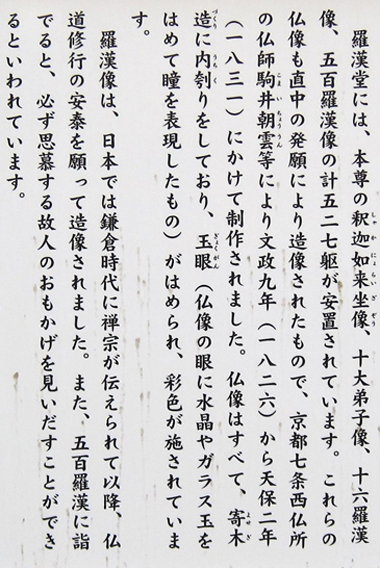 羅漢堂には、本尊の釈迦如来坐像、十大弟子像、十六羅漢
像、五百羅漢像の計五二七躯が安置されています。これらの
仏像も直中の発願により造像されたもので、京都七条西仏所
の仏師駒井朝雲等により文政九年（一八二六）から天保二年
（一八三一）にかけて制作されました。仏像はすべて、寄木
造に内刳りをしており、玉眼（仏像の眼に水晶やガラス玉を
はめて瞳を表現したもの）がはめられ、彩色が施されていま
す。
羅漢像は、日本では鎌倉時代に禅宗が伝えられて以降、仏
道修行の安泰を願って造像されました。また、五百羅漢に詣
でると、必ず思慕する故人のおもかげを見いだすことができ
るといわれています。